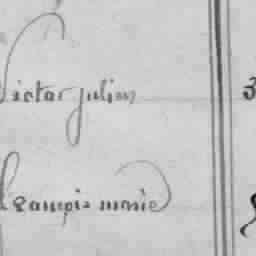 Victor julien
françois marie